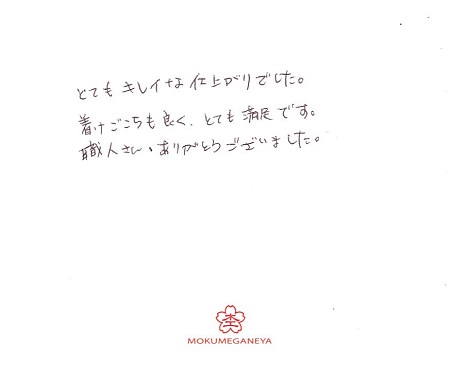 とてもキレイな仕上がりでした。
着けごこちも良く、とても満足です。
職人さん、ありがとうございました。
MOKUMEGANEYA